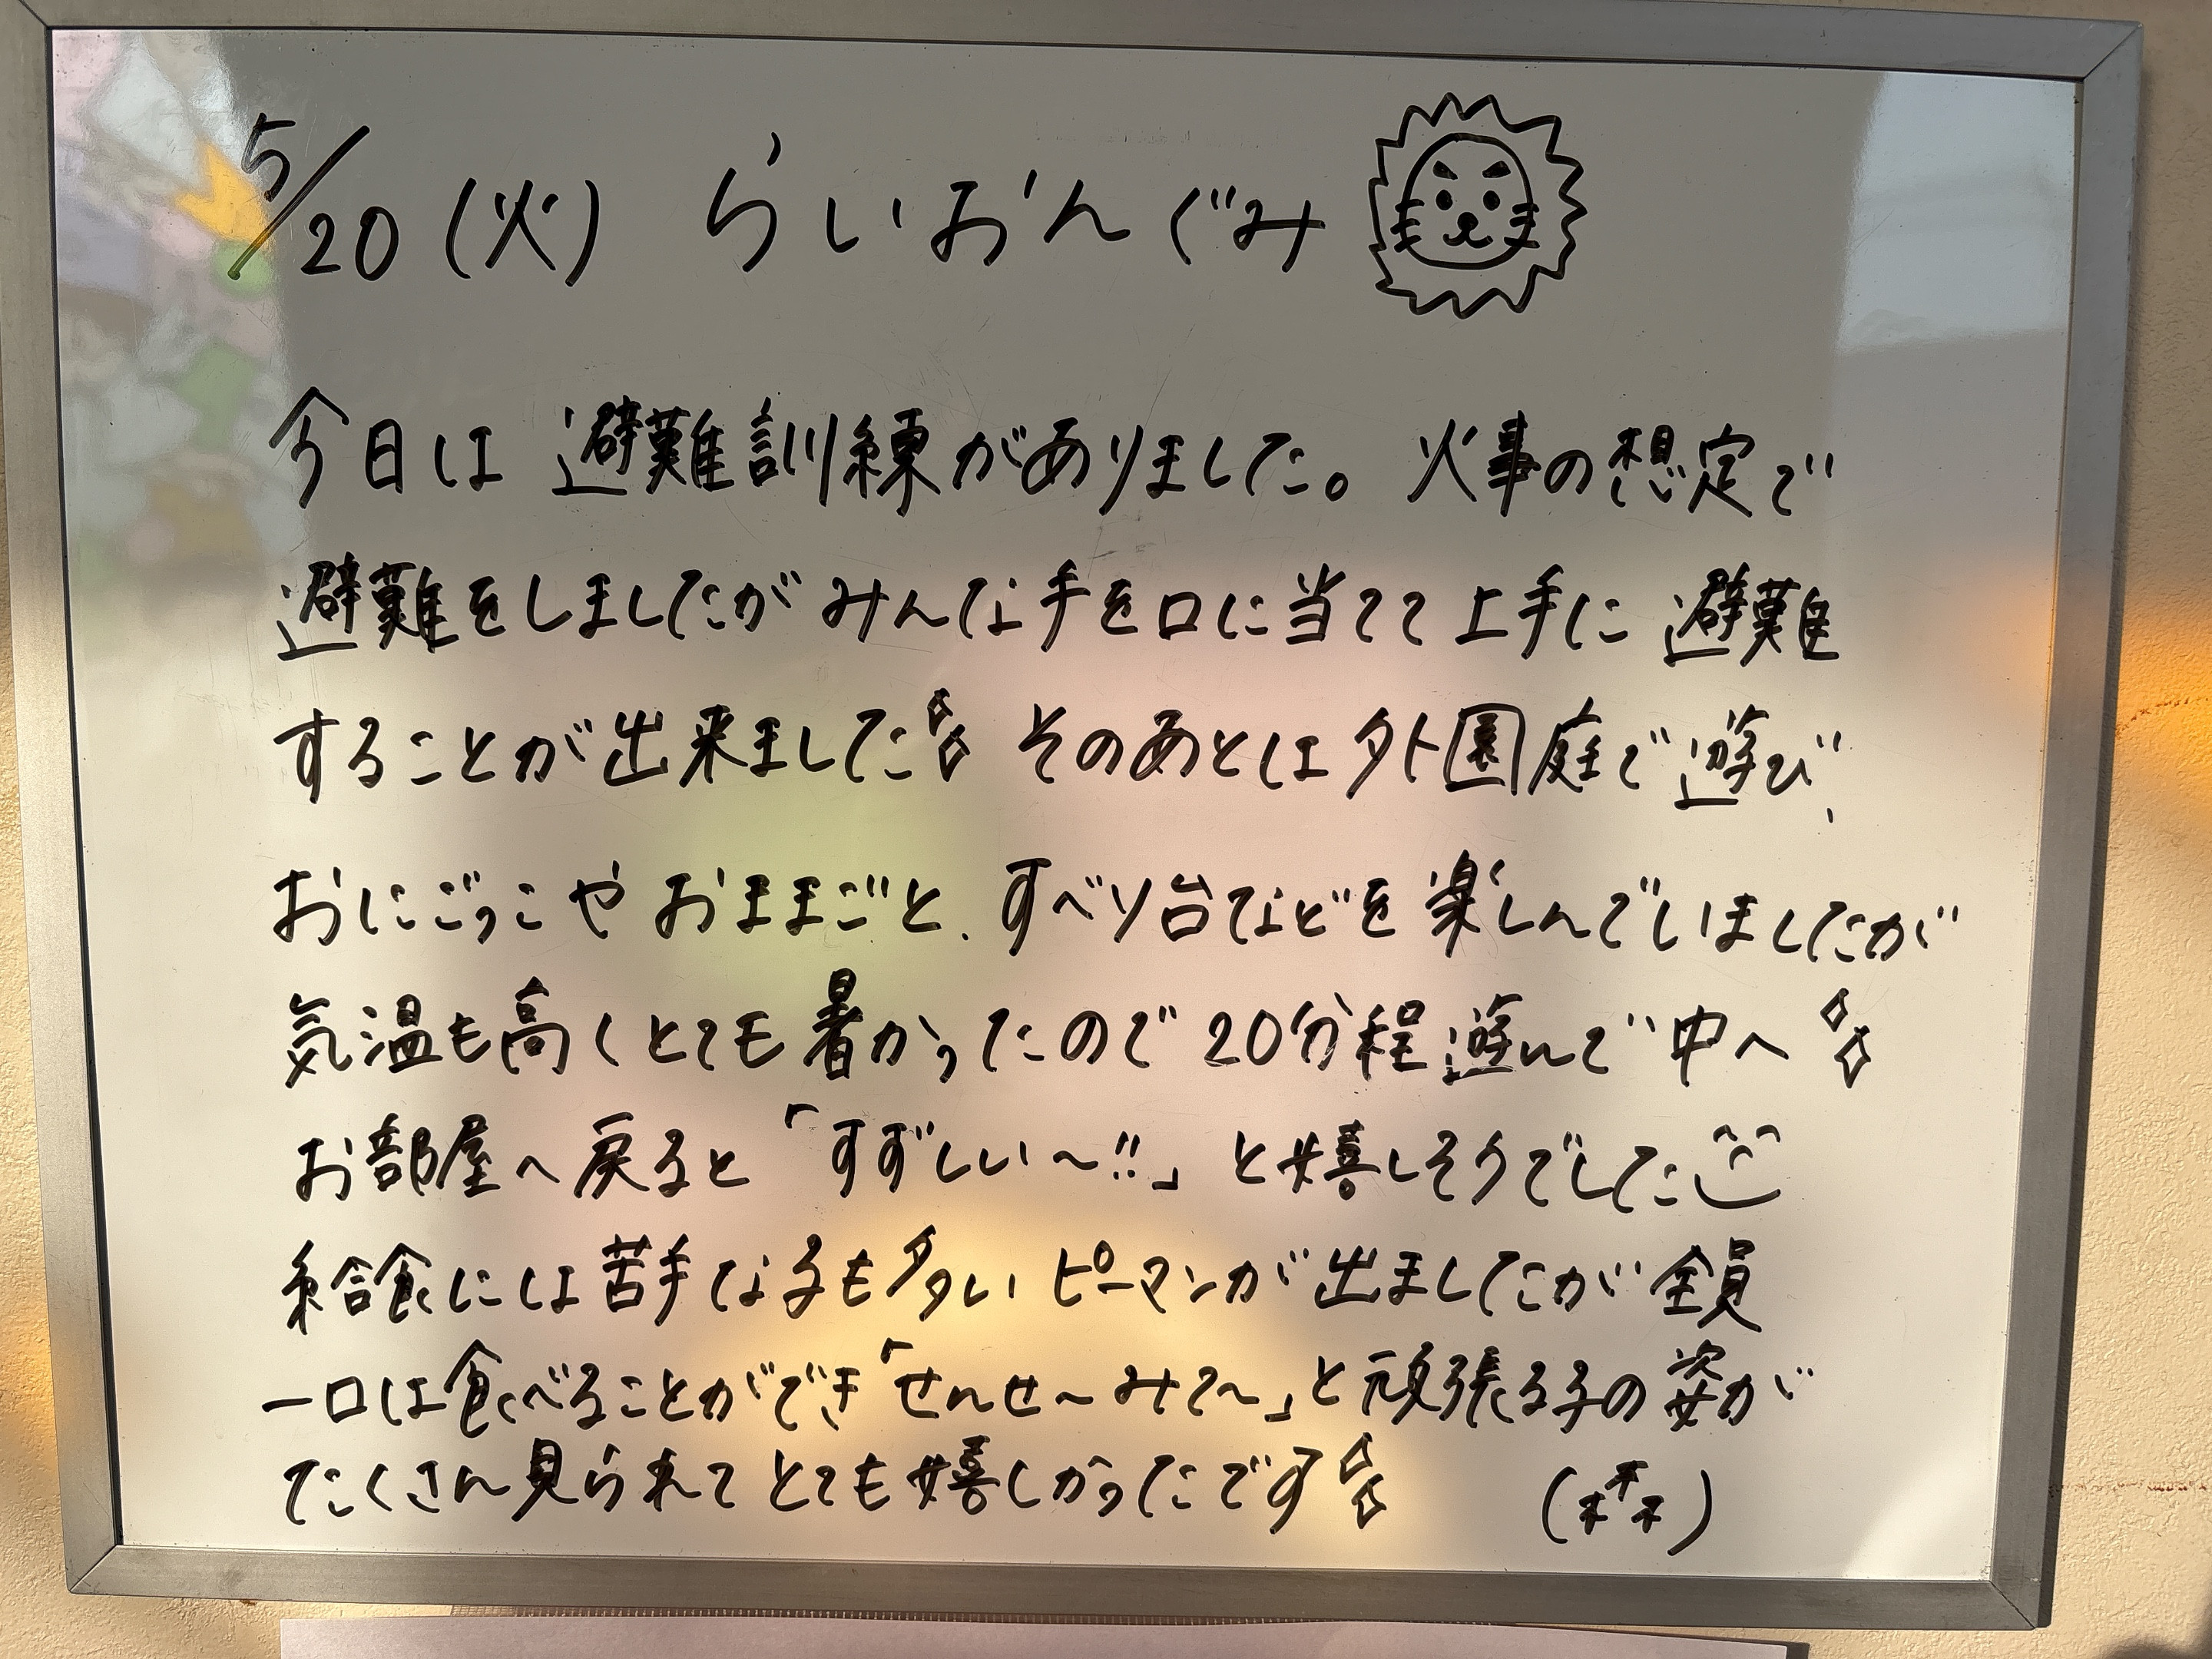 5/20(火) らいおんぐみ
今日は避難訓練がありました。火事の想定で
避難をしましたがみんな手を口に当てて上手に避難
することが出来ました そのあとは外園庭で遊び、
おにごっこやおままごと、すべり台などを楽しんでいましたが
気温も高くとても暑かったので20分程遊んで中へ
お部屋へ戻ると「すずしい〜!!」と嬉しそうでした
給食には苦手な子も多いピーマンが出ましたが全員
一口は食べることができ「せんせ〜みて〜」と頑張る子の姿が
たくさん見られてとても嬉しかったです (森)